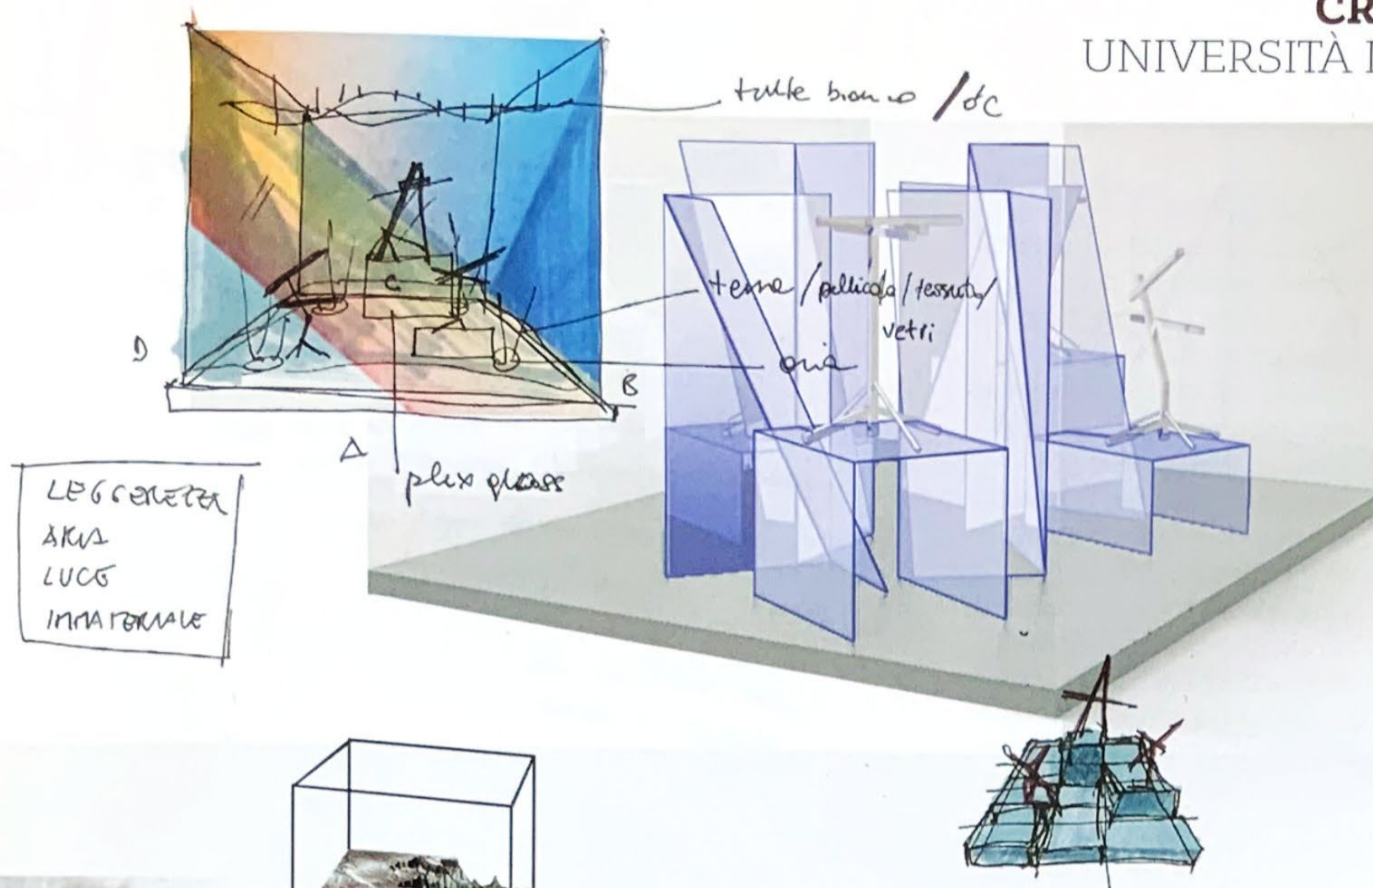 CR
UNIVERSITÀ
tulle bianco /
terra / pellicola / tessuto /
vetri
aria
C
D
B
A
plexglass
LEGGEREZZA
ARIA
LUCE
IMMATERIALE